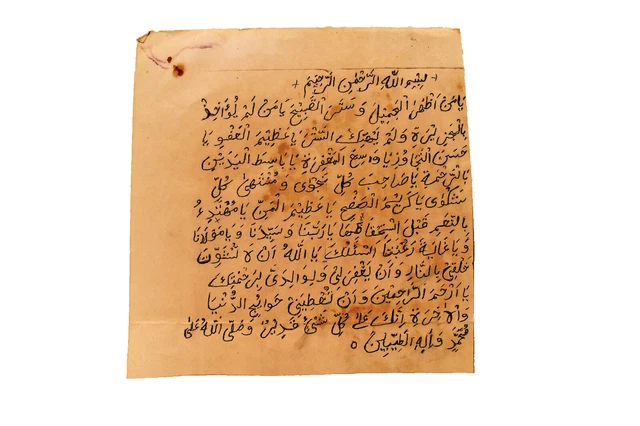 + بِسْمِ اللهِ الرَّحْمٰنِ الرَّحِيْمِ +
يَا مَنْ اَظْهَرَ الْجَمِيْلَ وَ سَتَرَ الْقَبِيْحَ يَا مَنْ لَمْ يُؤَاخِذْ
بِالْجَرِيْرَةِ وَ لَمْ يَهْتِكَ السِّتْرَ يَا عَظِيْمَ الْعَفْوِ يَا
حَسَنَ التَّجَاوُزِ يَا وَاسِعَ الْمَغْفِرَةِ يَا بَاسِطَ الْيَدَيْنِ
بِالرَّحْمَةِ يَا صَاحِبَ كُلِّ نَجْوٰى وَ مُنْتَهٰى كُلِّ
شَكْوٰى يَا كَرِيْمَ الصَّفْحِ يَا عَظِيْمَ الْمَنِّ يَا مُبْتَدِءُ
بِالنِّعَمِ قَبْلَ اسْتِحْقَاقِهَا يَا رَبَّنَا وَ سَيِّدَنَا وَ يَا مَوْلَانَا
وَ يَا غَايَةَ رَغْبَتِنَا اَسْئَلُكَ يَا اَللهُ اَنْ لَا تُشَوِّهَ
خَلْقِيْ بِالنَّارِ وَ اَنْ يَغْفِرَ لِيْ وَ لِوَالِدَيَّ بِرَحْمَتِكَ
يَا اَرْحَمَ الرَّاحِمِيْنَ وَ اَنْ تُعْطِيَنِيْ حَوَائِجَ الدُّنْيَا
وَ الْاٰخِرَةِ اِنَّكَ عَلٰى كُلِّ شَيْءٍ قَدِيْرٌ وَ صَلَّى اللهُ عَلٰى
مُحَمَّدٍ وَ اٰلِهِ الطَّيِّبِيْنَ ٥